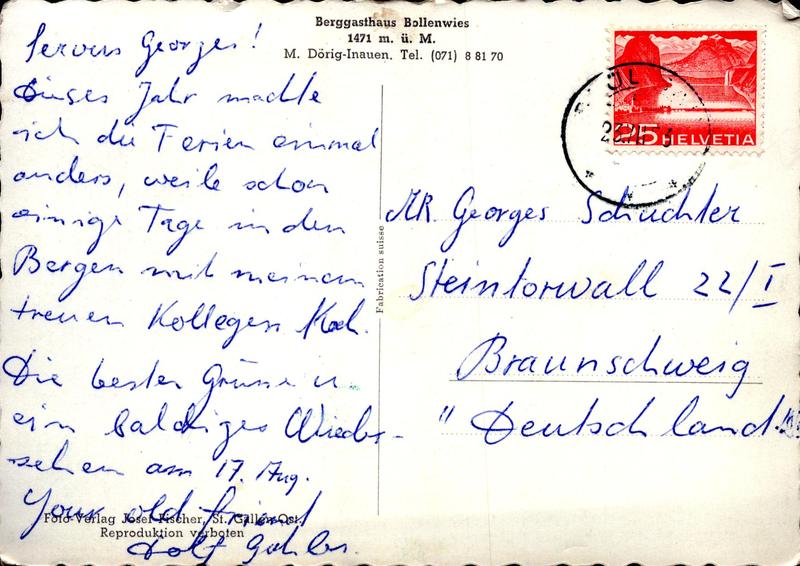 Berggasthaus Bollenwies
1471 m. ü. M.
M. Dörig-Inauen. Tel. (071) 8 81 70
Servus Georges!
Dieses Jahr mache
ich die Ferien einmal
anders, weile schon
einige Tage in den
Bergen mit meinem
treuen Kollegen Koch.
Die besten Grüsse u.
ein baldiges Wieder-
sehen am 17. Aug.
Your old friend
Dolf
Foto-Verlag Josef Fischer, St. Gallen-Ost.
Reproduktion verboten
Fabrication suisse
25 HELVETIA
MR. Georges Schuchter
Steintorwall 22/I
Braunschweig
" Deutschland.